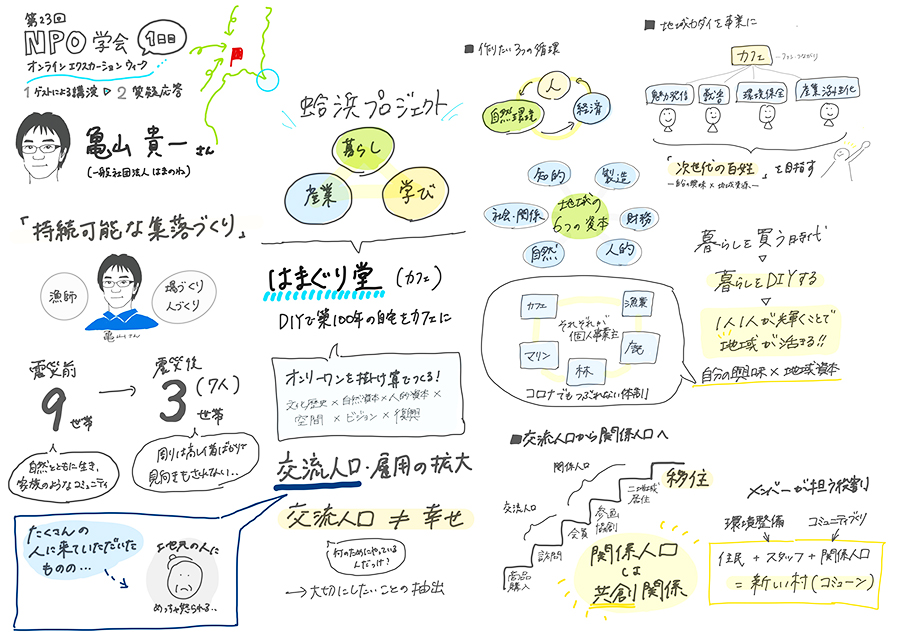 第23回
NPO学会
1日目
オンラインエクスカーションウィーク
1 ゲストによる講演 ▷ 2 質疑応答
亀山 貴一 さん
(一般社団法人 はまのね)
「持続可能な集落づくり」
漁師
場づくり
人づくり
亀山さん
震災前
9世帯
震災後
3世帯 (7人)
自然とともに生き、
家族のようなコミュニティ
見向きもされてない…
たくさんの
人に来ていただいた
ものの…
地元の人に
めっちゃ怒られる…
蛤浜プロジェクト
暮らし
産業
学び
はまぐり堂 (カフェ)
DIYで築100年の自宅をカフェに
オンリーワンを掛け算でつくる!
文化歴史×自然資本×人的資本×
空間×ビジョン×復興
交流人口・雇用の拡大
交流人口 ≠ 幸せ
村のためにやっている
んだっけ?
→ 大切にしたいことの抽出
■作りたい3つの循環
人
自然環境
経済
知的
製造
社会・関係
地域の
6つの資本
財務
自然
人的
カフェ
漁業
それぞれが
個人事業主
マリン
林
コロナでもつぶれない体制!
■交流人口から関係人口へ
関係人口
交流人口
商品
購入
訪問
会員
参画
協創
二地域
居住
移住
関係人口
は
共創関係
■地域カダイを事業に
カフェ
魅力発信
環境保全
産業活性化
「次世代の百姓」を目指す
ー自分の興味×地域資源ー
暮らしを買う時代
▽
暮らしをDIYする
▽
1人1人が輝くことで
地域が活きる!!
自分の興味×地域資本
メンバーが担う役割
環境整備
コミュニティづくり
住民 + スタッフ + 関係人口
= 新しい村(コミューン)